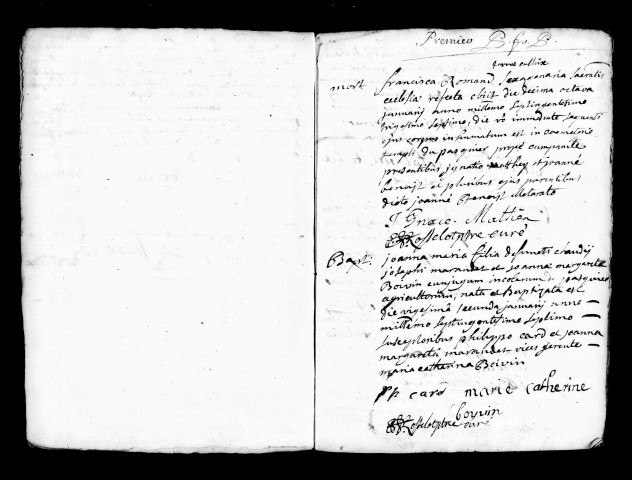 Premier
mort francisca Romand sexagenaria sacratis
ecclesia refecta obiit die decima octava
januarii anno millesimo septingentesimo
trigesimo septimo, die vo immediate sequenti
ejus corpus inhumatum est in coemeterio
templi du pasquier prope campanille
presentibus ignatio mathey et joanne
benoist et pluribus ejus parentibus
dicto joanne Benoist
J Gnace Mathieu
curé
Bapt: joanna maria filia defuncti claudij
josephi marandet et joannae margaritae
Boivin conjugum incolarum du pasquier
agricultorum, nata et Baptizata est
die vigesima secunda januarij anno
millesimo septingentesimo septimo
susceptoribus philippo card et joanna
margareta marandet vices gerente
maria catharina Boivin
ph card marie catherine
boivin
curé